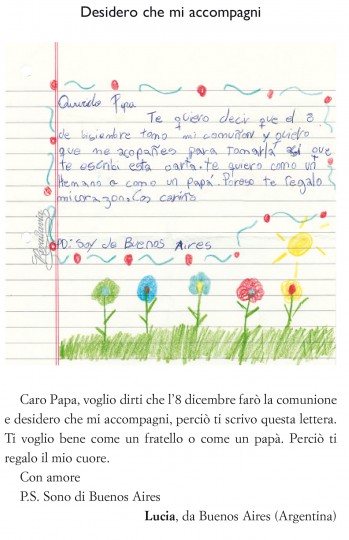 Desidero che mi accompagni
Querido Papa
Te quiero decir que el 8
de bisiembre tomo mi comunion y quiero
que me acopañes para tomarla asi que
te escribi esta carta. te quiero como un
Hemano o como un papá. Poreso te regalo
mi corazon. Con cariño
PD: Soy de Buenos Aires
Caro Papa, voglio dirti che l'8 dicembre farò la comunione
e desidero che mi accompagni, perciò ti scrivo questa lettera.
Ti voglio bene come un fratello o come un papà. Perciò ti
regalo il mio cuore.
Con amore
P.S. Sono di Buenos Aires
Lucia, da Buenos Aires (Argentina)